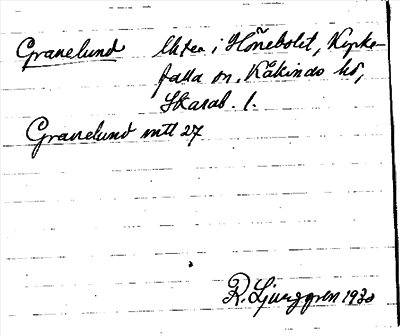 Granelund Utter i Hönebolet, Kyrke-
falla sn, Kåkinds hd,
Skarab. l.
Granelund mtl 27
R. Ljunggren 1930